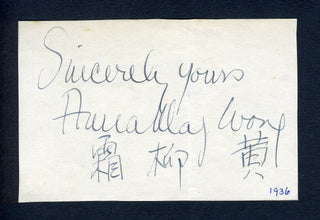 Sincerely yours
Anna May Wong
霜 柳 黄
1936